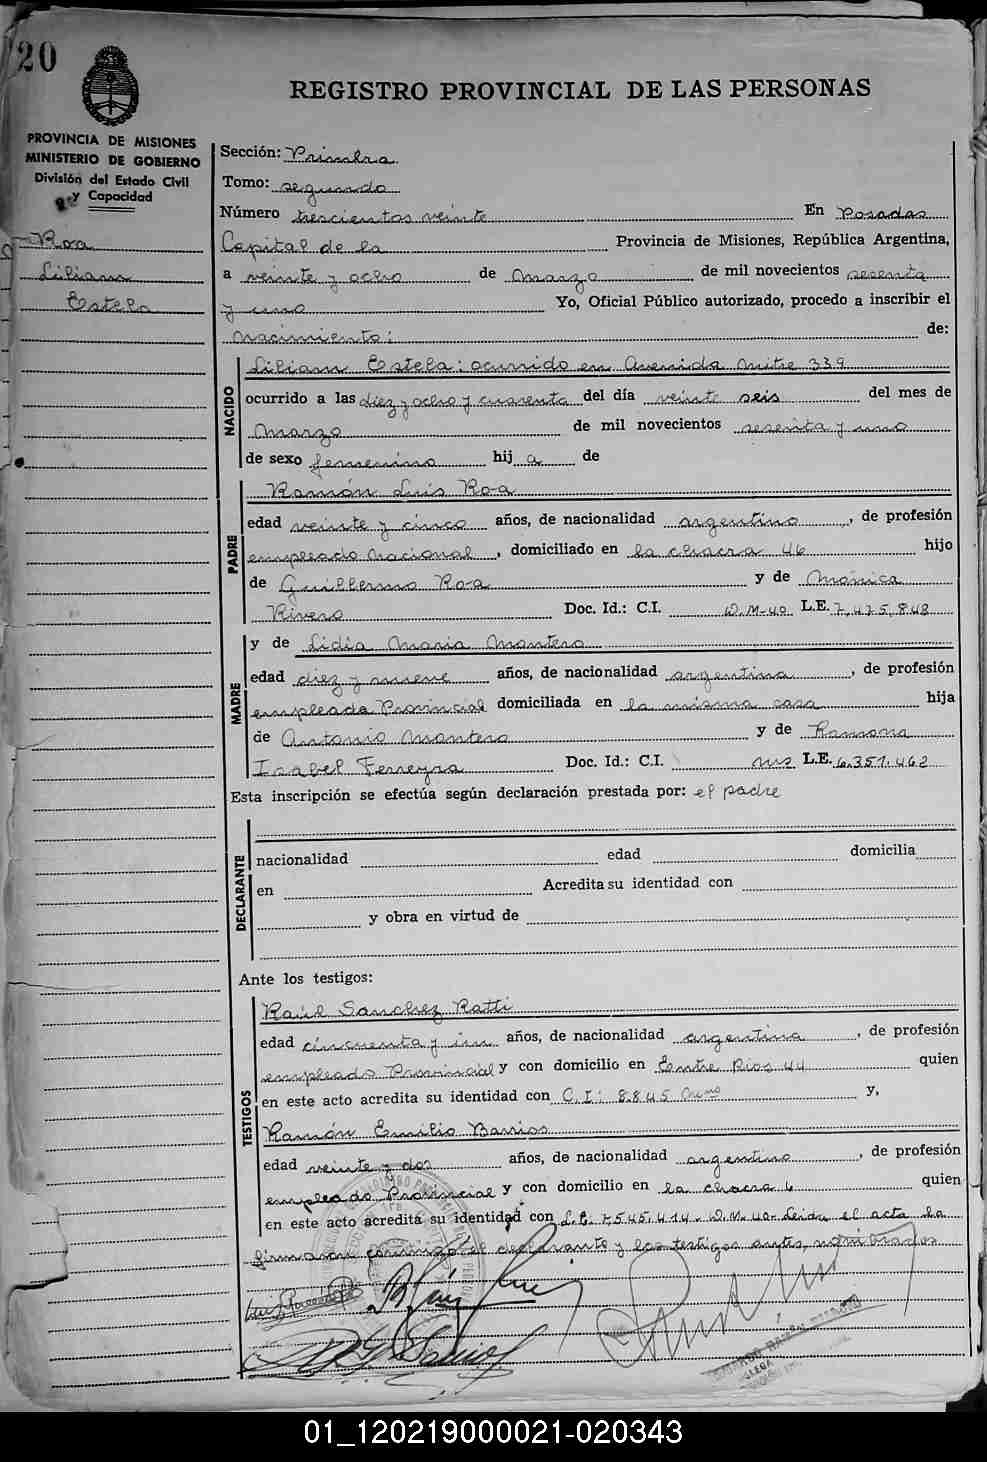 20
REGISTRO PROVINCIAL DE LAS PERSONAS
PROVINCIA DE MISIONES
MINISTERIO DE GOBIERNO
División del Estado Civil
y Capacidad
Roa
Liliam
Estela
Sección: Primera
Tomo: segundo
Número trescientos veinte En Posadas
Capital de la Provincia de Misiones, República Argentina,
a veinte y ocho de Marzo de mil novecientos sesenta
y uno Yo, Oficial Público autorizado, procedo a inscribir el
Nacimiento: de:
NACIDO
Liliam Estela: ocurrido en Avenida Mitre 339
ocurrido a las diez y ocho y cuarenta del día veinte seis del mes de
Marzo de mil novecientos sesenta y uno
de sexo femenino hij a de
PADRE
Ramón Luis Roa
edad veinte y cinco años, de nacionalidad argentino, de profesión
empleado Nacional, domiciliado en la chacra 46 hijo
de Guillermo Roa y de Mónica
Rivero Doc. Id.: C.I. D.M-40 L.E. 7.475.848
MADRE
y de Lidia Maria Montero
edad diez y nueve años, de nacionalidad argentina, de profesión
empleada Provincial domiciliada en la misma casa hija
de Antonio Montero y de Ramona
Isabel Ferreyra Doc. Id.: C.I. L.E. 6.351.462
Esta inscripción se efectúa según declaración prestada por: el padre
DECLARANTE
nacionalidad edad domicilia
en Acredita su identidad con
y obra en virtud de
Ante los testigos:
TESTIGOS
Raúl Sanchez Ratti
edad cincuenta y un años, de nacionalidad argentina, de profesión
empleado Provincial y con domicilio en Entre Rios 44 quien
en este acto acredita su identidad con C.I: 8.845 y,
Ramón Emilio Barrios
edad veinte y dos años, de nacionalidad argentino, de profesión
empleado Provincial y con domicilio en la chacra 6 quien
en este acto acredita su identidad con L.E. 7.545.414. D.M. 40. Leida el acta la
firmaron conmigo el declarante y los testigos antes nombrados
01_120219000021-020343